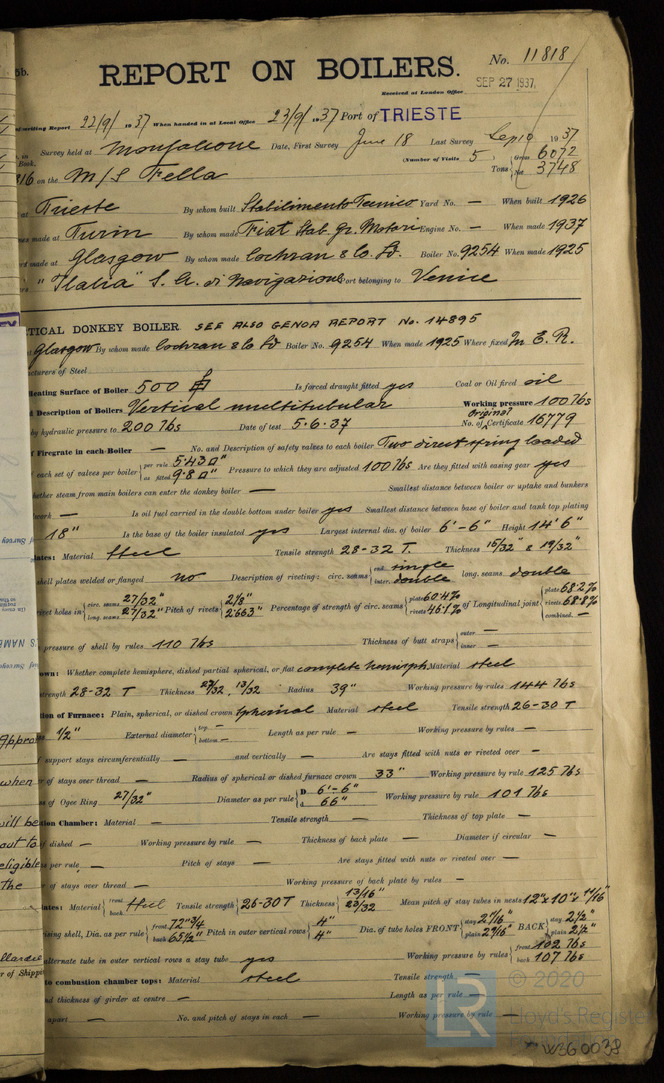 5b.
No. 11818
REPORT ON BOILERS.
SEP 27 1937
Received at London Office
of writing Report 22/9/ 1937 When handed in at Local Office 23/9/ 1937 Port of TRIESTE
Survey held at Monfalcone Date, First Survey June 18 Last Survey Sep 10 1937
Book.
(Number of Visits 5)
816 on the M/S Fella Tons Gross 6072
Net 3748
at Trieste By whom built Stabilimento Tecnico Yard No. — When built 1926
es made at Turin By whom made Fiat Stab. Gr. Motori Engine No. — When made 1937
made at Glasgow By whom made Cochran & Co. Ld. Boiler No. 9254 When made 1925
"Italia" S. A. di Navigazione Port belonging to Venice
TICAL DONKEY BOILER. SEE ALSO GENOA REPORT No. 14895
Glasgow By whom made Cochran & Co Ld Boiler No. 9254 When made 1925 Where fixed In E. R.
cturers of Steel
Heating Surface of Boiler 500 Is forced draught fitted yes Coal or Oil fired oil
d Description of Boilers Vertical multitubular Working pressure 100 lbs
by hydraulic pressure to 200 lbs Date of test 5.6.37 No. of original Certificate 16779
f Firegrate in each Boiler — No. and Description of safety valves to each boiler Two direct spring loaded
f each set of valves per boiler per rule 5.43□" as fitted 9.8□" Pressure to which they are adjusted 100 lbs Are they fitted with easing gear yes
hether steam from main boilers can enter the donkey boiler — Smallest distance between boiler or uptake and bunkers
work — Is oil fuel carried in the double bottom under boiler yes Smallest distance between base of boiler and tank top plating
18" Is the base of the boiler insulated yes Largest internal dia. of boiler 6'-6" Height 14' 6"
lates: Material steel Tensile strength 28-32 T. Thickness 15/32" & 19/32"
shell plates welded or flanged no Description of riveting: circ. seams end single inter. double long. seams double
rivet holes in circ. seams 27/32" long. seams 27/32" Pitch of rivets 2/8" 2.663" Percentage of strength of circ. seams plate 60.4% rivets 46.1% of Longitudinal joint plate 68.2% rivets 68.8% combined —
pressure of shell by rules 110 lbs Thickness of butt straps outer — inner —
own: Whether complete hemisphere, dished partial spherical, or flat complete hemisph. Material steel
strength 28-32 T Thickness 23/32, 13/32 Radius 39" Working pressure by rules 144 lbs
ion of Furnace: Plain, spherical, or dished crown spherical Material steel Tensile strength 26-30 T
1/2" External diameter top — bottom — Length as per rule — Working pressure by rules —
f support stays circumferentially — and vertically — Are stays fitted with nuts or riveted over —
r of stays over thread — Radius of spherical or dished furnace crown 33" Working pressure by rule 125 lbs
s of Ogee Ring 27/32" Diameter as per rule D 6'-6" d 66" Working pressure by rule 101 lbs
tion Chamber: Material — Tensile strength — Thickness of top plate —
f dished — Working pressure by rule — Thickness of back plate — Diameter if circular —
s per rule — Pitch of stays — Are stays fitted with nuts or riveted over —
r of stays over thread — Working pressure of back plate by rules —
lates: Material front back steel Tensile strength 26-30T Thickness 13/16" 23/32 Mean pitch of stay tubes in nests 12" x 10" x 11/16"
rising shell, Dia. as per rule front 72"3/4 back 65 1/2" Pitch in outer vertical rows 4" 4" Dia. of tube holes FRONT stay 2 7/16" plain 2 9/16" BACK stay 2 1/2" plain 2 1/2"
alternate tube in outer vertical rows a stay tube yes Working pressure by rules front 102 lbs back 107 lbs
to combustion chamber tops: Material steel Tensile strength —
nd thickness of girder at centre — Length as per rule —
apart — No. and pitch of stays in each — Working pressure by rule —
Appro
when
will be
out to
eligible
the
r of Shipp
LR
© 2020
Lloyd's Register
W360038